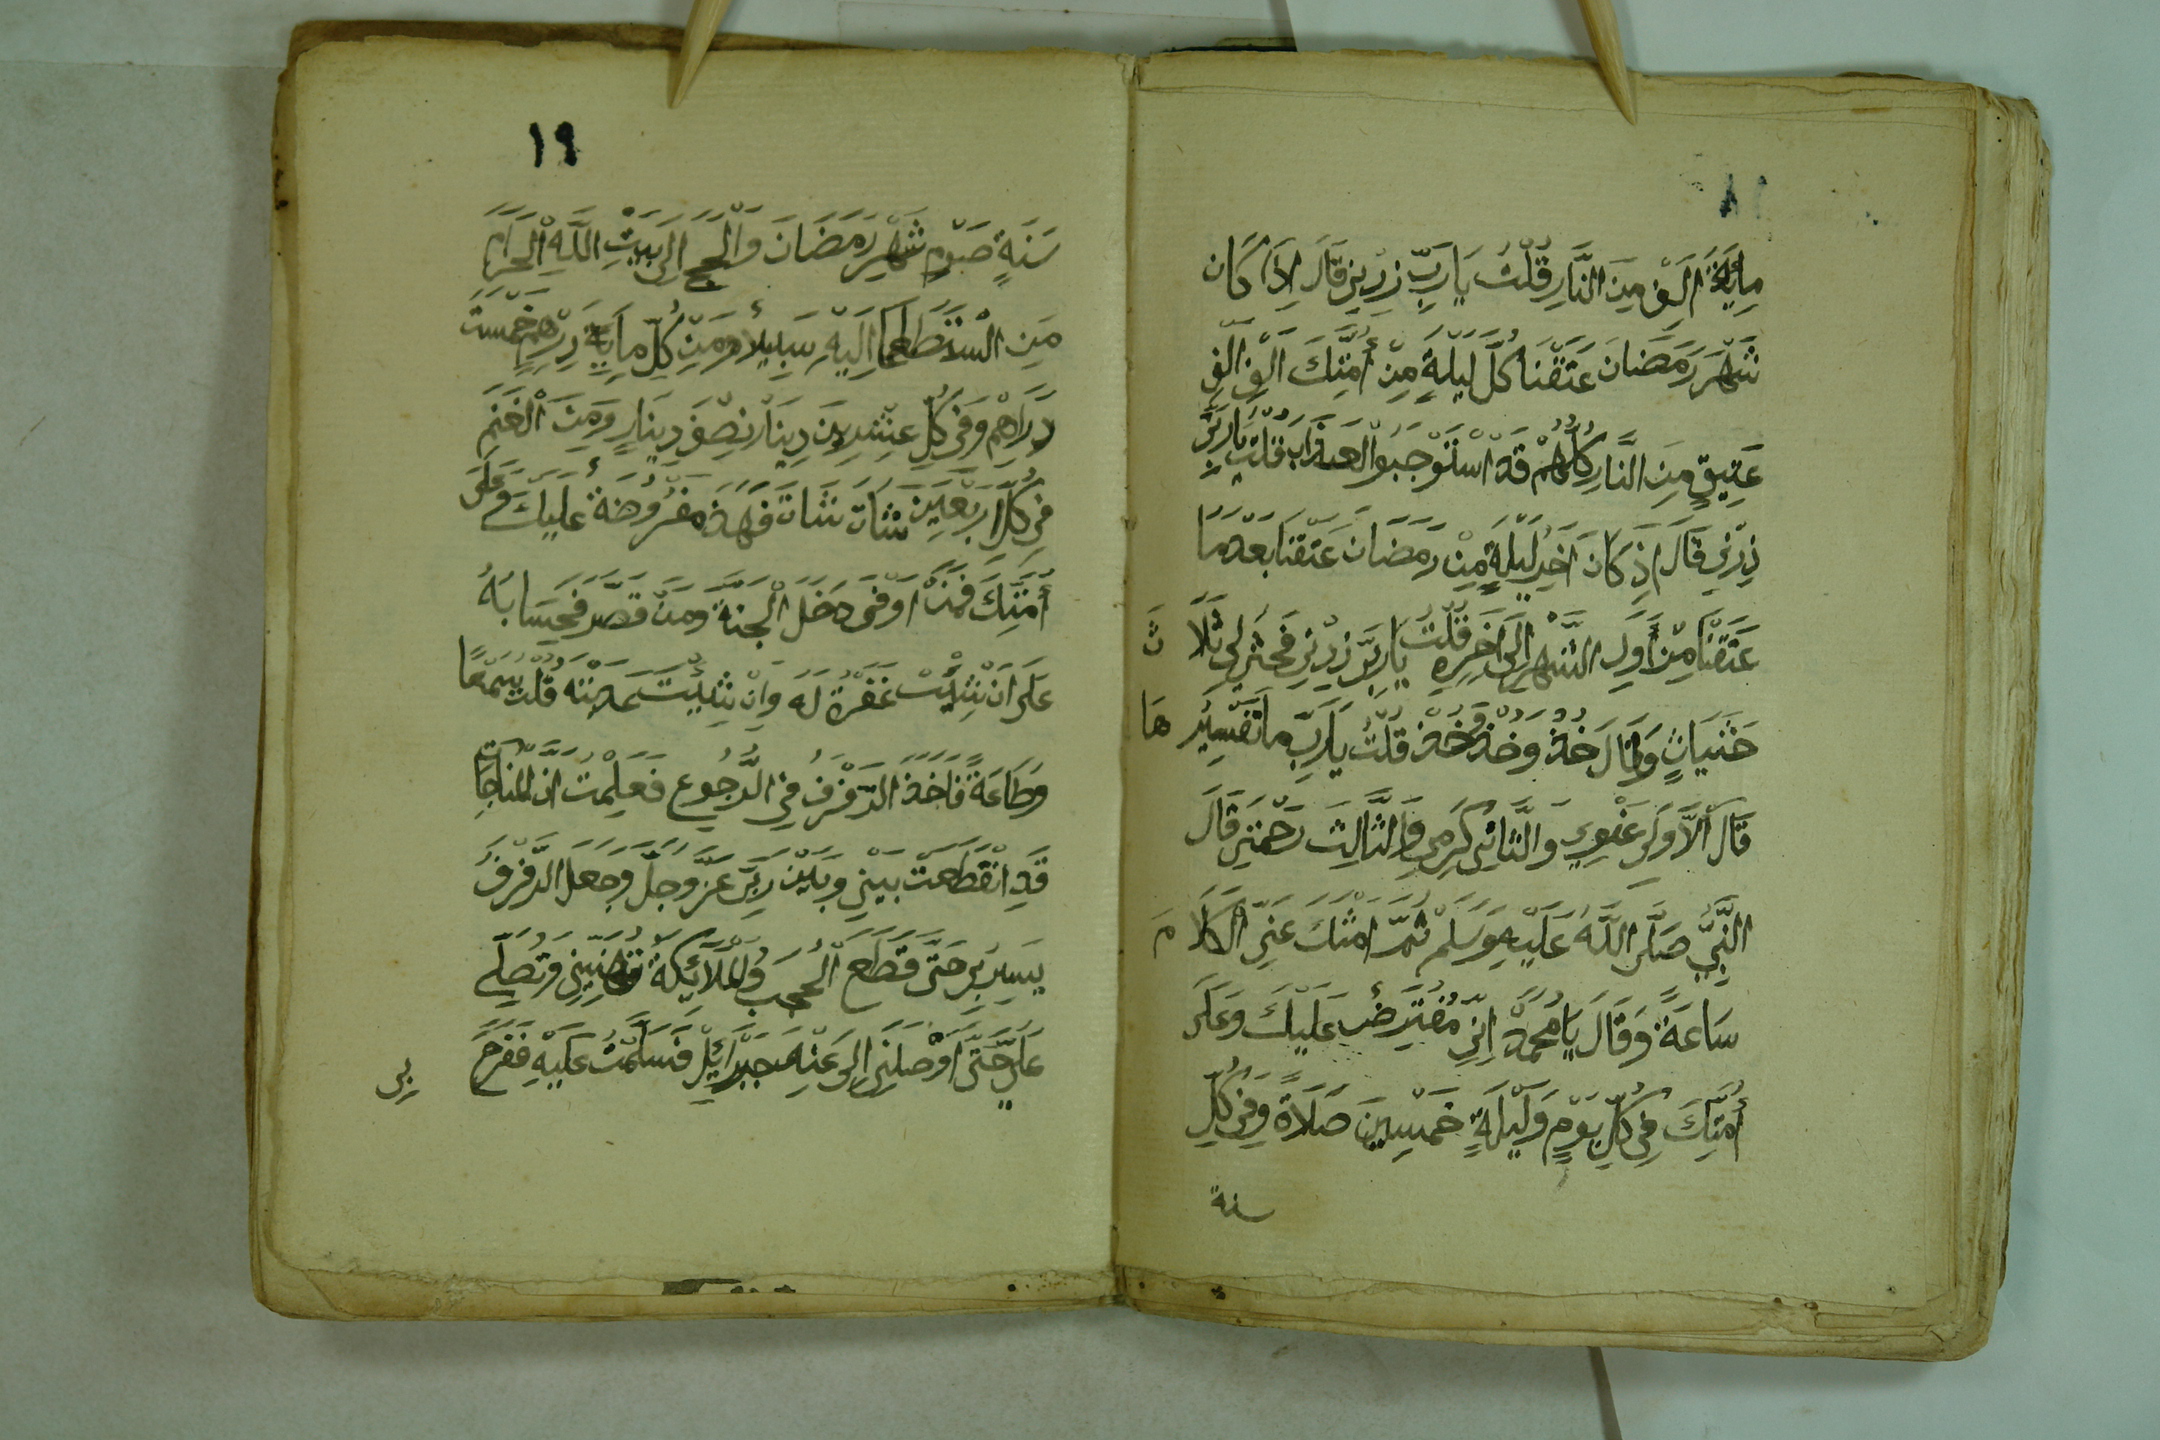 ١٨
مِايَةَ اَلَفْ مِنَ النَّارِ قُلْتُ يَا رَبِّ زِدْنِى قَالَ اِذَا كَان
شَهْرَ رَمَضَانَ عَتَقْنَا كُلَّ لَيْلَةٍ مِنْ اُمَّتِكَ اَلْفِ اَلْفِ
عَتِيقٍ مِنَ النَّارِ كُلُّهُمْ قَدْ اسْتَوْجَبُوا الْعَذَابَ قُلْتُ يَا رَبِّ
زِدْنِي قَالَ اِذ كَانَ اَخِرُ لَيْلَةٍ مِنْ رَمَضَانَ عَتَقْنَا بَعْدَمَا
عَتَقْنَا مِنْ اَوَّلِ الشَّهْرِ اِلَى اَخِرِهِ قُلْتُ يَارَبِّ زِدْنِى فَحَثَى لِى ثَلَاثَ
حَثَيَاتٍ وَقَالَ خُذْ وَخُذْ وَخُذْ قُلْتُ يَارَبِّ مَا تَفْسِيرُ هَا
قَالَ اَلْاَوَلَى عَفْوِي وَالثَّانِى كَرَمِي وَالثَّالِثَ رَحْمَتِى قَالَ
النَّبِيُّ صَلَّى اللَّهُ عَلَيْهِ وَسَلَمْ ثُمَّ امْسَكَ عَنِّى الْكَلَامَ
سَاعَةً وَقَالَ يَا مُحَمَّدْ اِنِّى مُفْتَرِضُ عَلَيْكَ وَعَلَى
اُمَّتِكَ فِى كُلِّ يَوْمٍ وَلَيْلَةٍ خَمْسِينَ صَلَاةً وَفِى كُلِّ
سنة
١٩
سَنَةٍ صَوْمِ شَهْرِ رَمَضَانَ وَالْحَجِّ اِلَى بَيْتِ اللَّهِ الْحَرَامِ
مَنِ اسْتَطَاعَ اِلَيْهِ سَبِيلاً وَمِنْ كُلِّ مِايَةِ دِرْهَمٍ خَمْسَةَ
دَرَاهِمْ وَفِى كُلِّ عِشْرِينَ دِينَارْ نِصْفَ دِينَارٍ وَمِنَ الْغَنَمِ
فِى كُلِّ اَرْبَعِينَ شَاتْ شَاتَ فَهَذَ مَفْرُوضَةٌ عَلَيْكَ وَعَلَى
اُمَّتِكَ فَمَنْ اَوْفَى دَخَلَ الْجَنَّةَ وَمَنْ قَصَّرَ فَحِسَابُهُ
عَلَى اَنْ شِئْتْ غَفَرْتُ لَهُ وَاِنْ شِئْتَ عَذَبْتَهُ قُلْتُ سَمْعًا
وَطَاعَةً فَاخَذَ الرَّفْرَفُ فِي الرُّجُوعِ فَعَلِمْتُ اَنَّ الْمُنَاجَاتَ
قَدِ انْقَطَعَتْ بَيْنِى وَبَيْنَ رَبِّى عَزَّ وَجَلَّ وَجَعَلَ الرَّفْرَفُ
يَسِيرُ بِى حَتَّى قَطَعَ الْحُجُبَ وَالْمَلَآئِكَةُ تُهَنِّينِى وَتُصَلِّى
عَلَيَّ حَتَّى اَوْصَلَنِى اِلَى عَنِدَ جَبْرَائِيلَ فَسَلَّمْتُ عَلَيْهِ فَفَرَحَ
بى